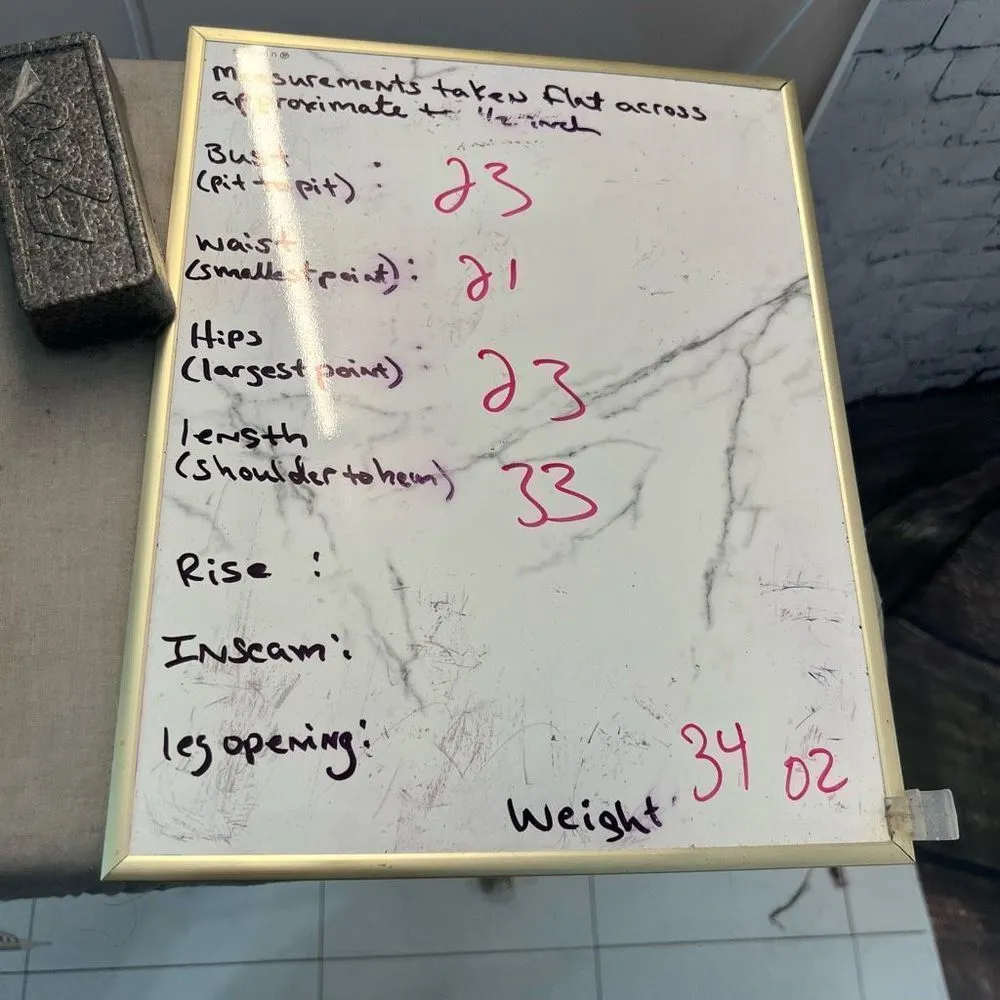 measurements taken flat across
approximate to 1/2 inch
Bust
(pit to pit) : 23
waist
(smallest point) : 21
Hips :
(largest point) 23
length
(shoulder to hem) 33
Rise :
Inseam :
leg opening :
34 oz
Weight